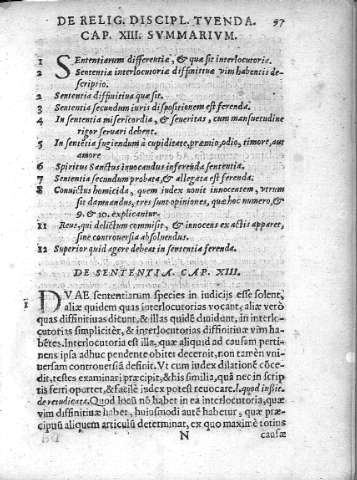 DE RELIG. DISCIPL. TVENDA. 97
CAP. XIII. SVMMARIVM.
1 SEntentiarum differentiæ, & quæ sit interlocutoria.
2 Sententia interlocutoria diffinitiuæ vim habentis descriptio.
2 Sententia diffinitiua quæ sit.
3 Sententia secundum iuris dispositionem est ferenda.
4 In sententia misericordia, & seueritas, cum mansuetudine
rigor seruari debent.
5 In sententia fugiendum à cupiditate, præmio, odio, timore, aut
amore.
6 Spiritus Sanctus inuocandus in ferenda sententia.
7 Sententia secundum probata, & allegata est ferenda.
8 Conuictus homicida, quem iudex nouit innocentem, vtrum
sit damnandus, tres sunt opiniones, quæ hoc numero, &
9. & 10. explicantur.
11 Reus, qui delictum commisit, & innocens ex actis apparet,
sine controuersia absoluendus.
12 Superior quid agere debeat in sententia ferenda.
DE SENTENTIA. CAP. XIII.
1 DVAE sententiarum species in iudicijs esse solent,
aliæ quidem quas interlocutorias vocant, aliæ verò
quas diffinitiuas dicunt, & illas quidē diuidunt, in interlo-
cutorias simpliciter, & interlocutorias diffinitiuæ vim ha-
bētes. Interlocutoria est illa, quæ aliquid ad causam perti-
nens ipsa adhuc pendente obiter decernit, non tamēn vni-
uersam controuersiā definit. Vt cum iudex dilationē cōce-
dit, testes examinari præcipit, & his similia, quæ nec in scrip
tis ferri oportet, & facilè iudex potest reuocare. l. quod iussit.
de re iudicata. Quod locū nō habet in ea interlocutoria, quæ
vim diffinitiuæ habet, huiusmodi autē habetur, quæ præ-
cipuū aliquem articulū determinat, ex quo maximè totius
N causæ